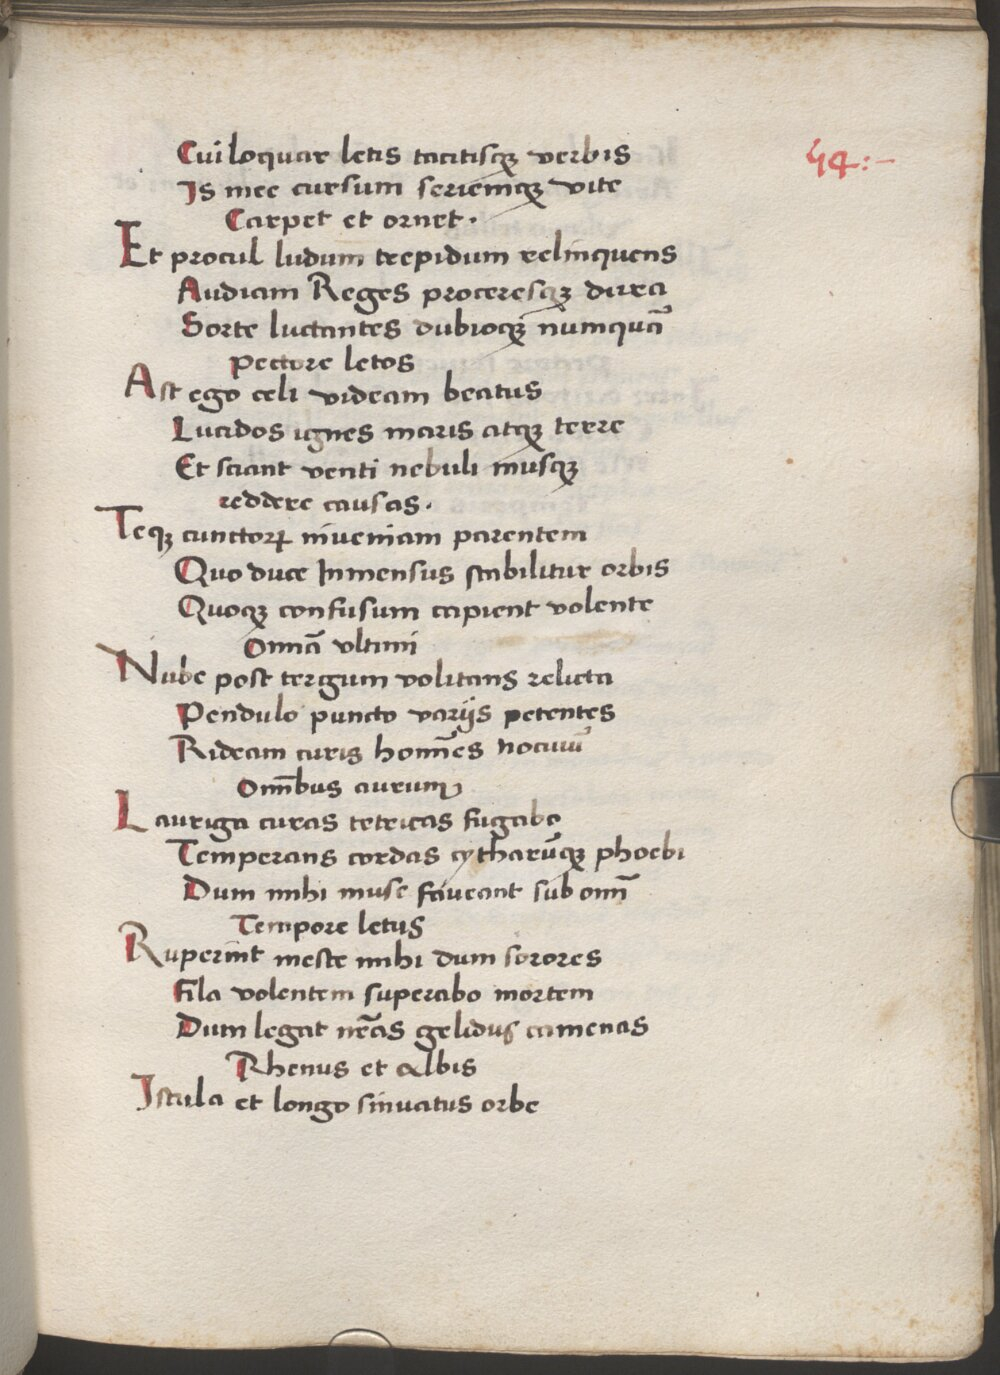 54:-
Cui loquar letis tacitisqꝫ verbis
Is mee cursum seriemqꝫ vite
Carpet et ornet.
Et procul ludum trepidum relinquens
Audiam Reges proceresqꝫ dura
Sorte luctantes dubioqꝫ numquā
pectore letos
Ast ego celi videam beatus
Lucidos ignes maris atqꝫ terre
Et sciant venti nebuli musqꝫ
reddere causas.
Teqꝫ cunctoꝝ inveniam parentem
Quo duce Inmensus stabilitur orbis
Quoqꝫ confusum capient volente
Omnā ultimi
Nube post tergum volitans relicta
Pendulo puncto varijs petentes
Rideam curis homīes nocuū
Omībus aurum
Lauriga curas tetricas fugabo
Temperans cordas cytharūqꝫ phoebi
Dum mihi muse faveant sub omī
Tempore letus
Ruperint meste mihi dum sorores
fila volentem superabo mortem
Dum legat nr̄as gelidus camenas
Rhenus et albis
Istula et longo sinuatus orbe